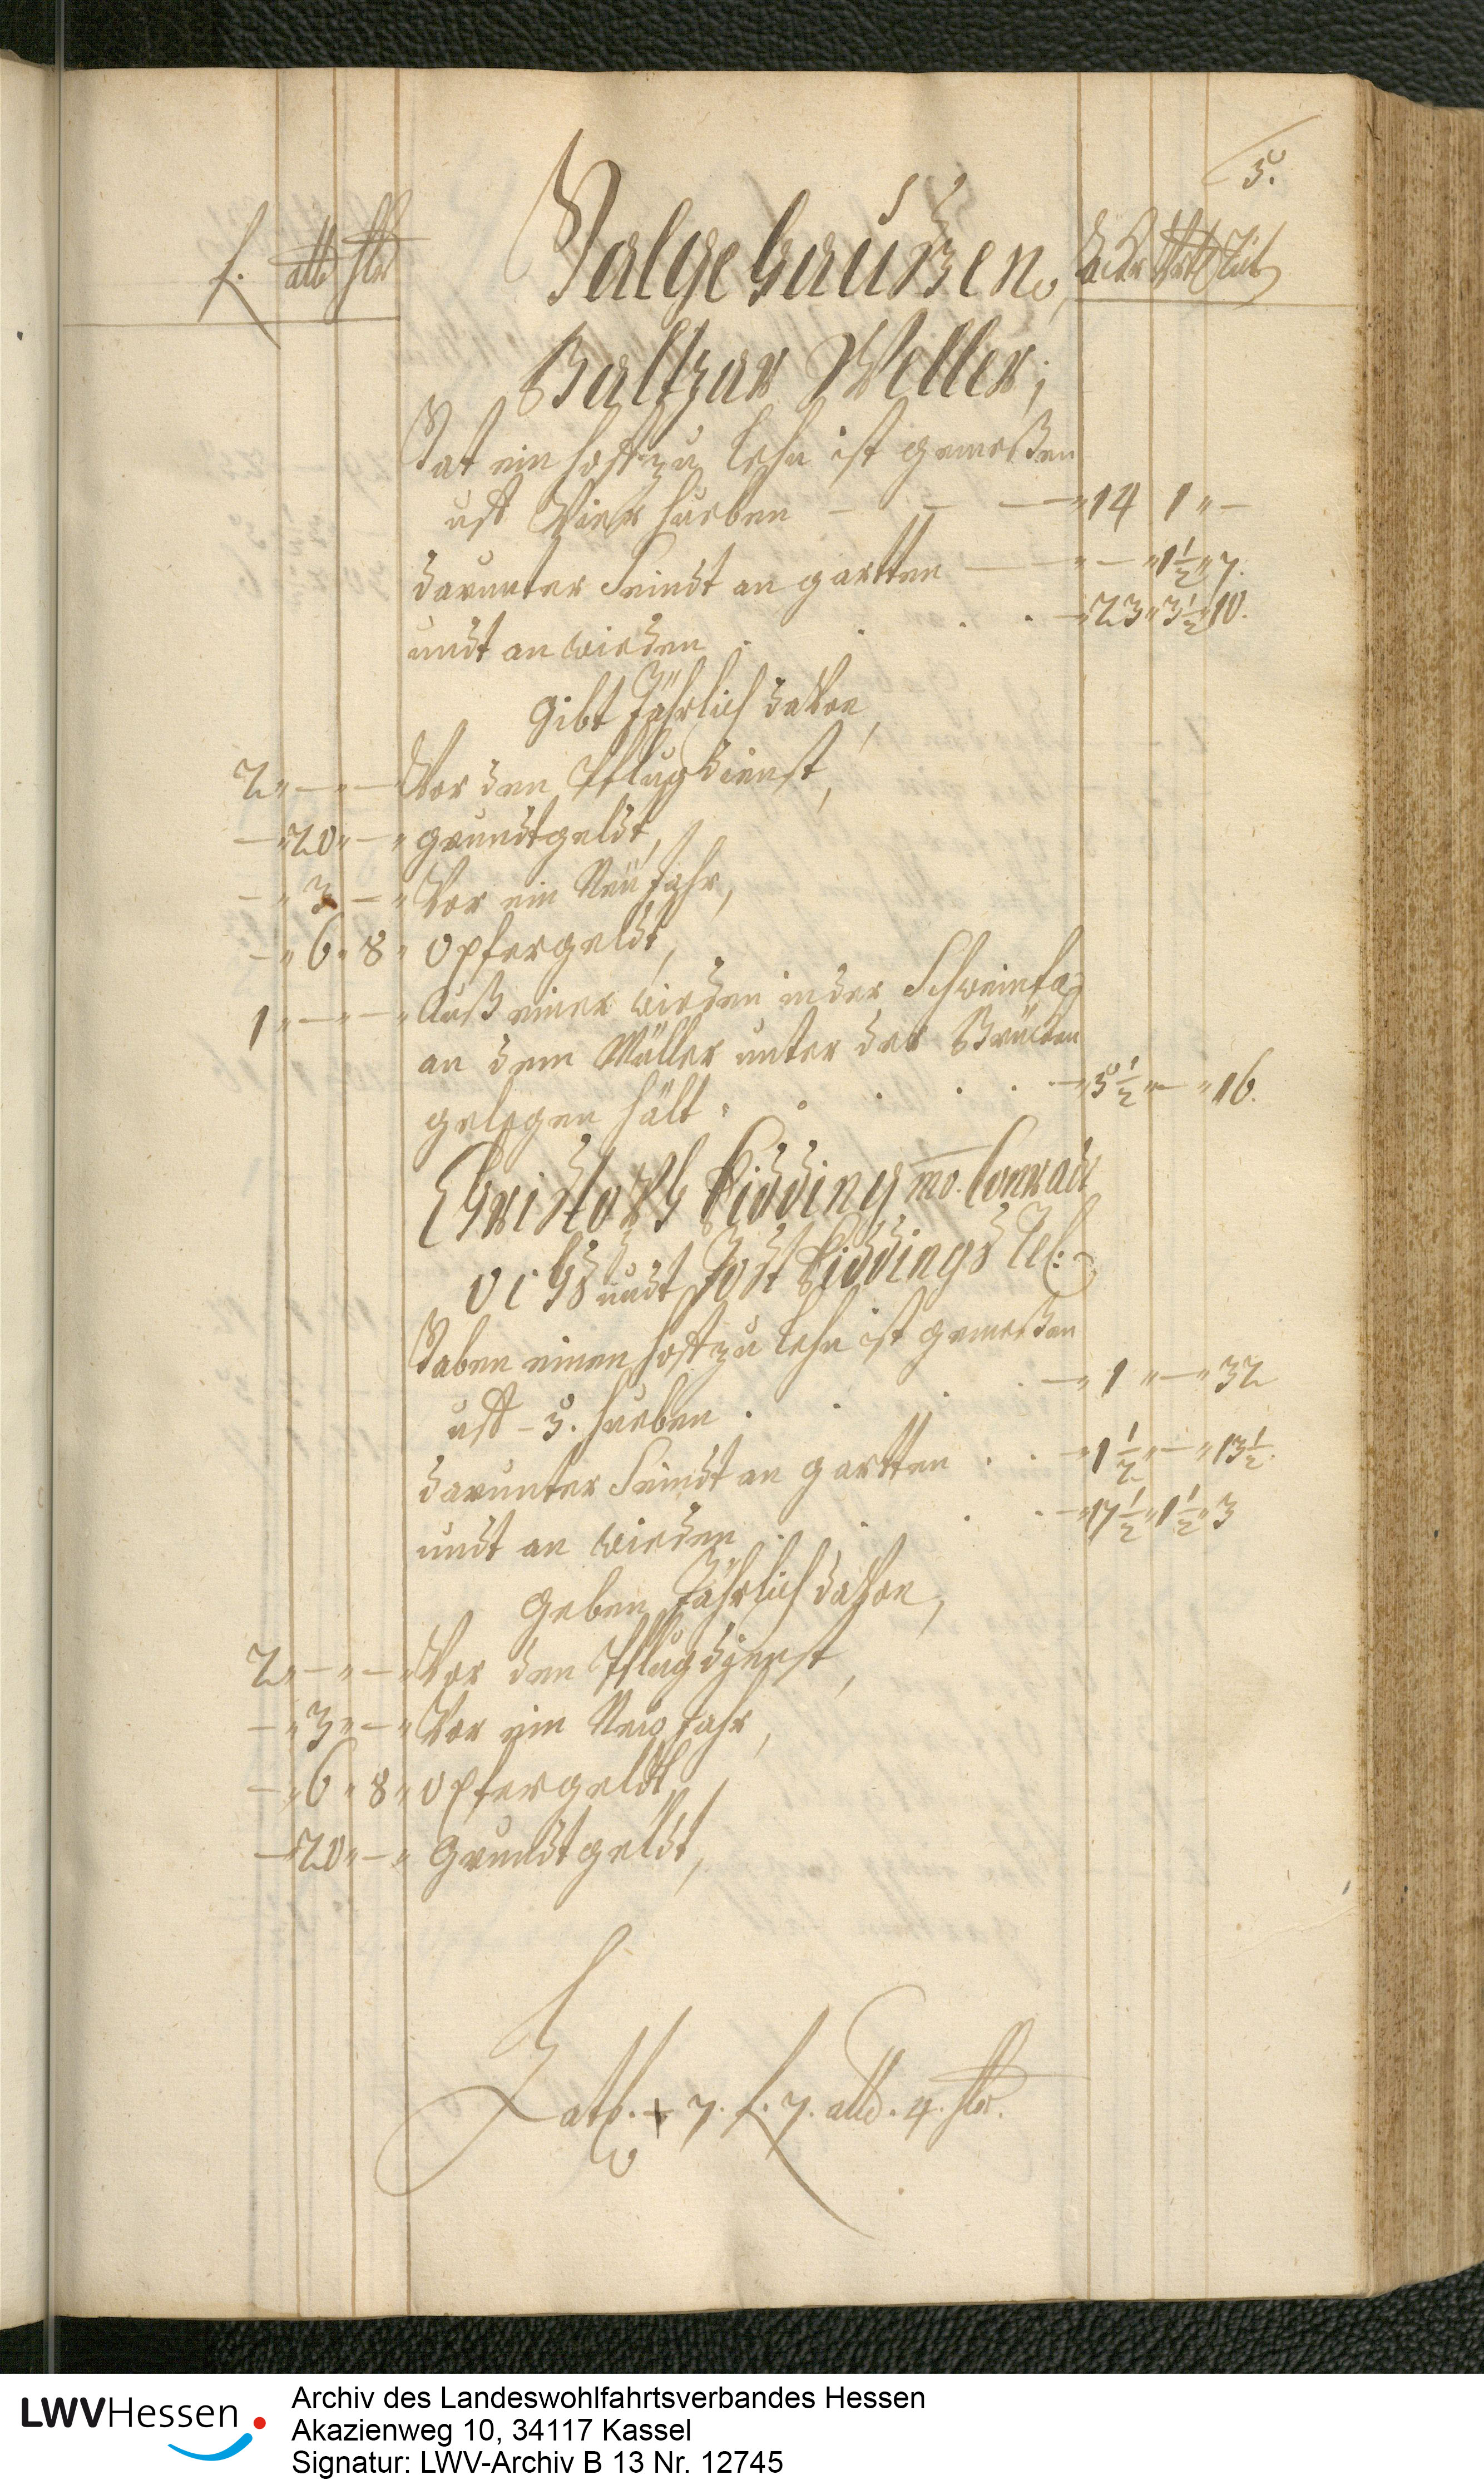 5.
f. alb hlr Halgehaußen, acker vrtl Rut
Baltzar Weller,
Hat ein hoff zu Lehn ist gemeßen
uff Vier hueben — — — 14 1 " —
darunter Seindt an gartten — " — " 1½ " 7.
undt an wießen . . . . — 23 " 3½ " 10.
Gibt Jährlich davon,
2 " — " — Vor den Pflugdienst,
— 20 " — " grundtgeldt,
— " 3 — " Vor ein Neü Jahr,
— " 6 " 8 " Opfergeldt,
1 " — " — " Auß einer wießen in der Schweinfa
an dem Müller unter der Brücken
gelegen hält . . . . . — 5½ " — " 16.
Christoph Kidding mo. Conradt
undt Jost Kiddings Rel:
Haben einen hoff zu Lehn ist gemeßen
uff 5. hueben . . . . — " 1 " — " 32
darunter Seindt an gartten . . — 1½ " — " 13½.
undt an wießen . . . . — 17½ " 1½ " 3
Geben Jährlich davon,
2 " — " — " Vor den Pflugdienst,
— " 3 " — " Vor ein New Jahr,
— " 6 " 8 " Opfergeldt,
— 20 " — " Grundtgeldt,
Latg. + 7. f. 7. alb. 4. hlr.
LWVHessen
Archiv des Landeswohlfahrtsverbandes Hessen
Akazienweg 10, 34117 Kassel
Signatur: LWV-Archiv B 13 Nr. 12745